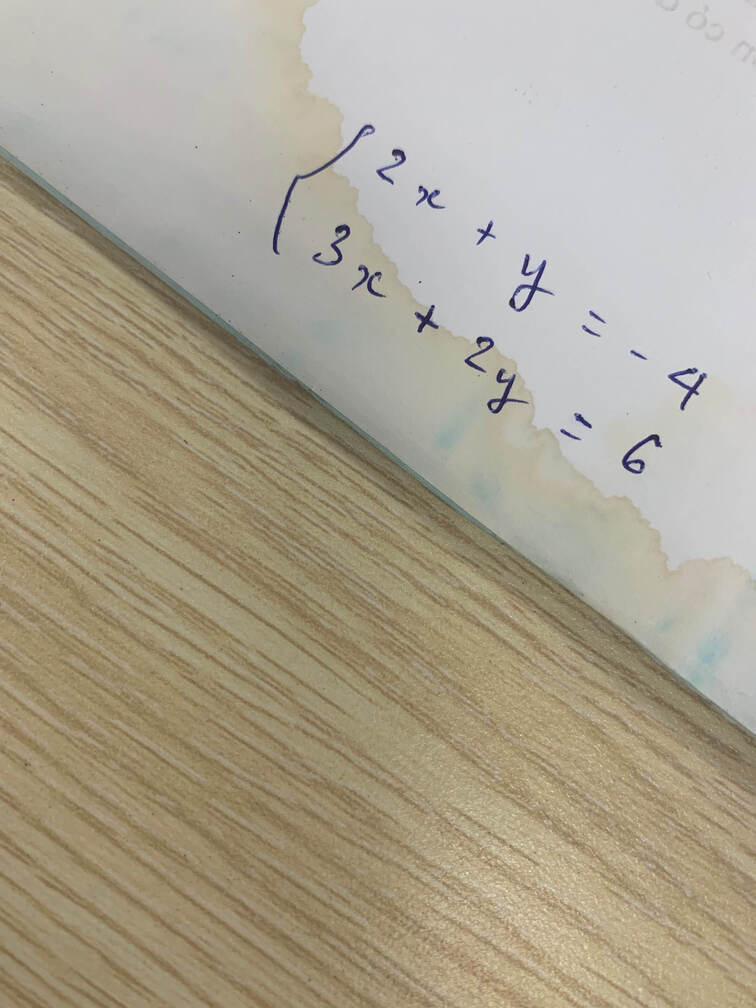 2x + y = - 4
3x + 2y = 6